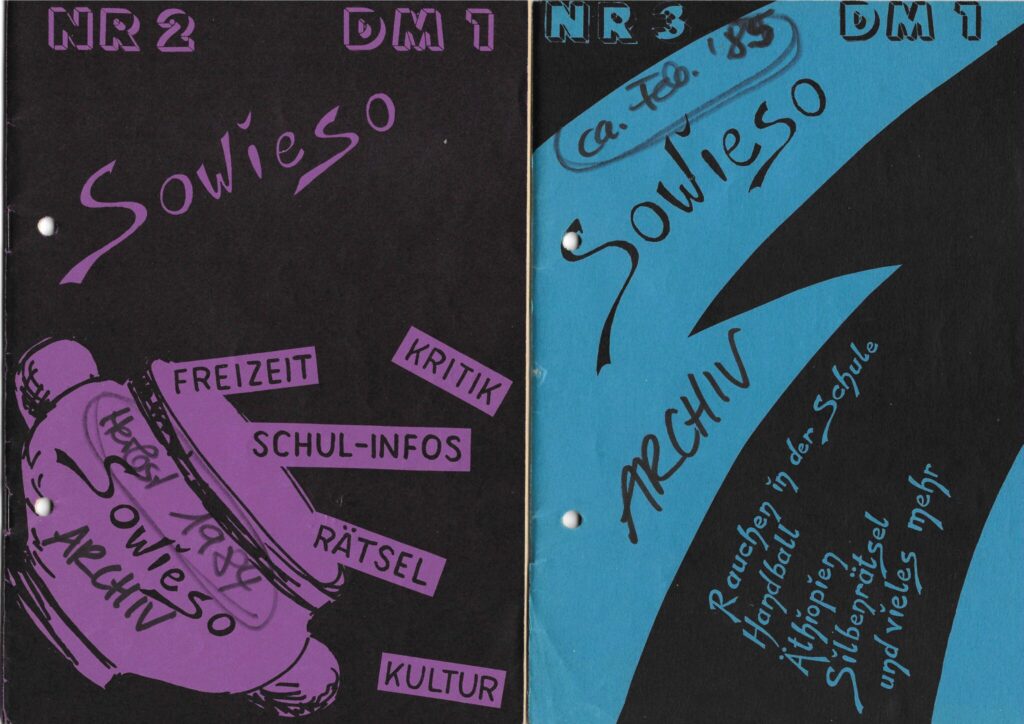 NR 2 DM 1
Sowieso
FREIZEIT
KRITIK
SCHUL-INFOS
RÄTSEL
KULTUR
Herbst 1984
Sowieso
ARCHIV
NR 3 DM 1
ca. Feb. '85
Sowieso
ARCHIV
Rauchen in der Schule
Handball
Äthiopien
Silbenrätsel
und vieles mehr